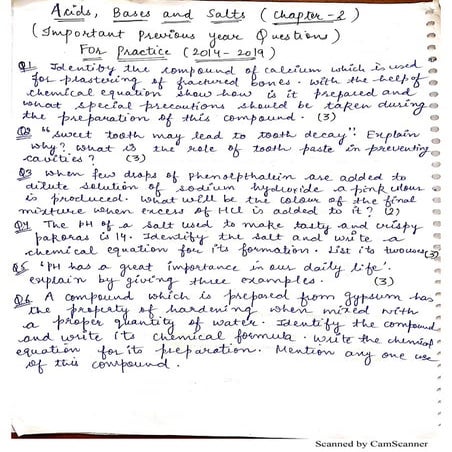 Acids, Bases and Salts (Chapter-2)
(Important Previous year Questions)
For Practice (2014-2019)
Q1 Identify the compound of calcium which is used
for plastering of fractured bones. With the help of
chemical equation show how is it prepared and
what special precautions should be taken during
the preparation of this compound. (3)
Q2 "Sweet tooth may lead to tooth decay". Explain
why? What is the role of tooth paste in preventing
cavities? (3)
Q3 When few drops of phenolpthalein are added to
dilute solution of sodium hydroxide a pink colour
is produced. What will be the colour of the final
mixture when excess of HCl is added to it? (2)
Q4 The pH of a salt used to make tasty and crispy
pakoras is 14. Identify the salt and write a
chemical equation for its formation. List its two uses (3)
Q5 'pH has a great importance in our daily life'.
explain by giving three examples. (3)
Q6 A compound which is prepared from gypsum has
the property of hardening when mixed with
a proper quantity of water. Identify the compound
and write its chemical formula. Write the chemical
equation for its preparation. Mention any one use
of this compound.
Scanned by CamScanner